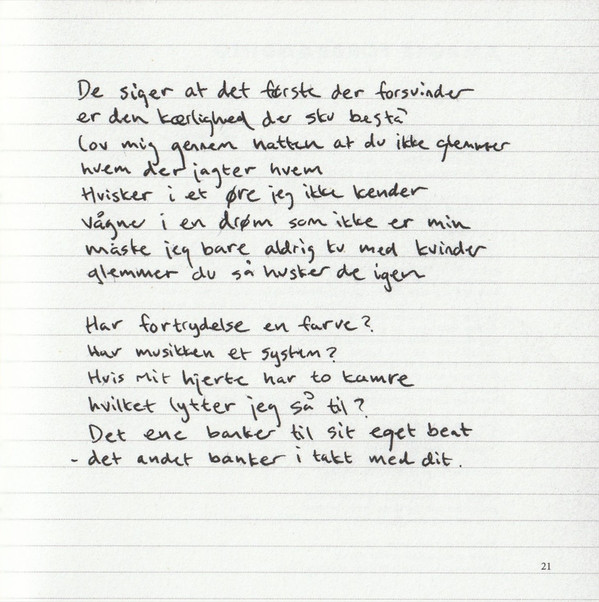 De siger at det første der forsvinder
er den kærlighed der sku bestå
lov mig gennem natten at du ikke glemmer
hvem der jagter hvem
Hvisker i et øre jeg ikke kender
vågner i en drøm som ikke er min
måske jeg bare aldrig ku med kvinder
glemmer du så husker de igen
Har fortrydelse en farve?
Har musikken et system?
Hvis mit hjerte har to kamre
hvilket lytter jeg så til?
Det ene banker til sit eget beat
- det andet banker i takt med dit.
21